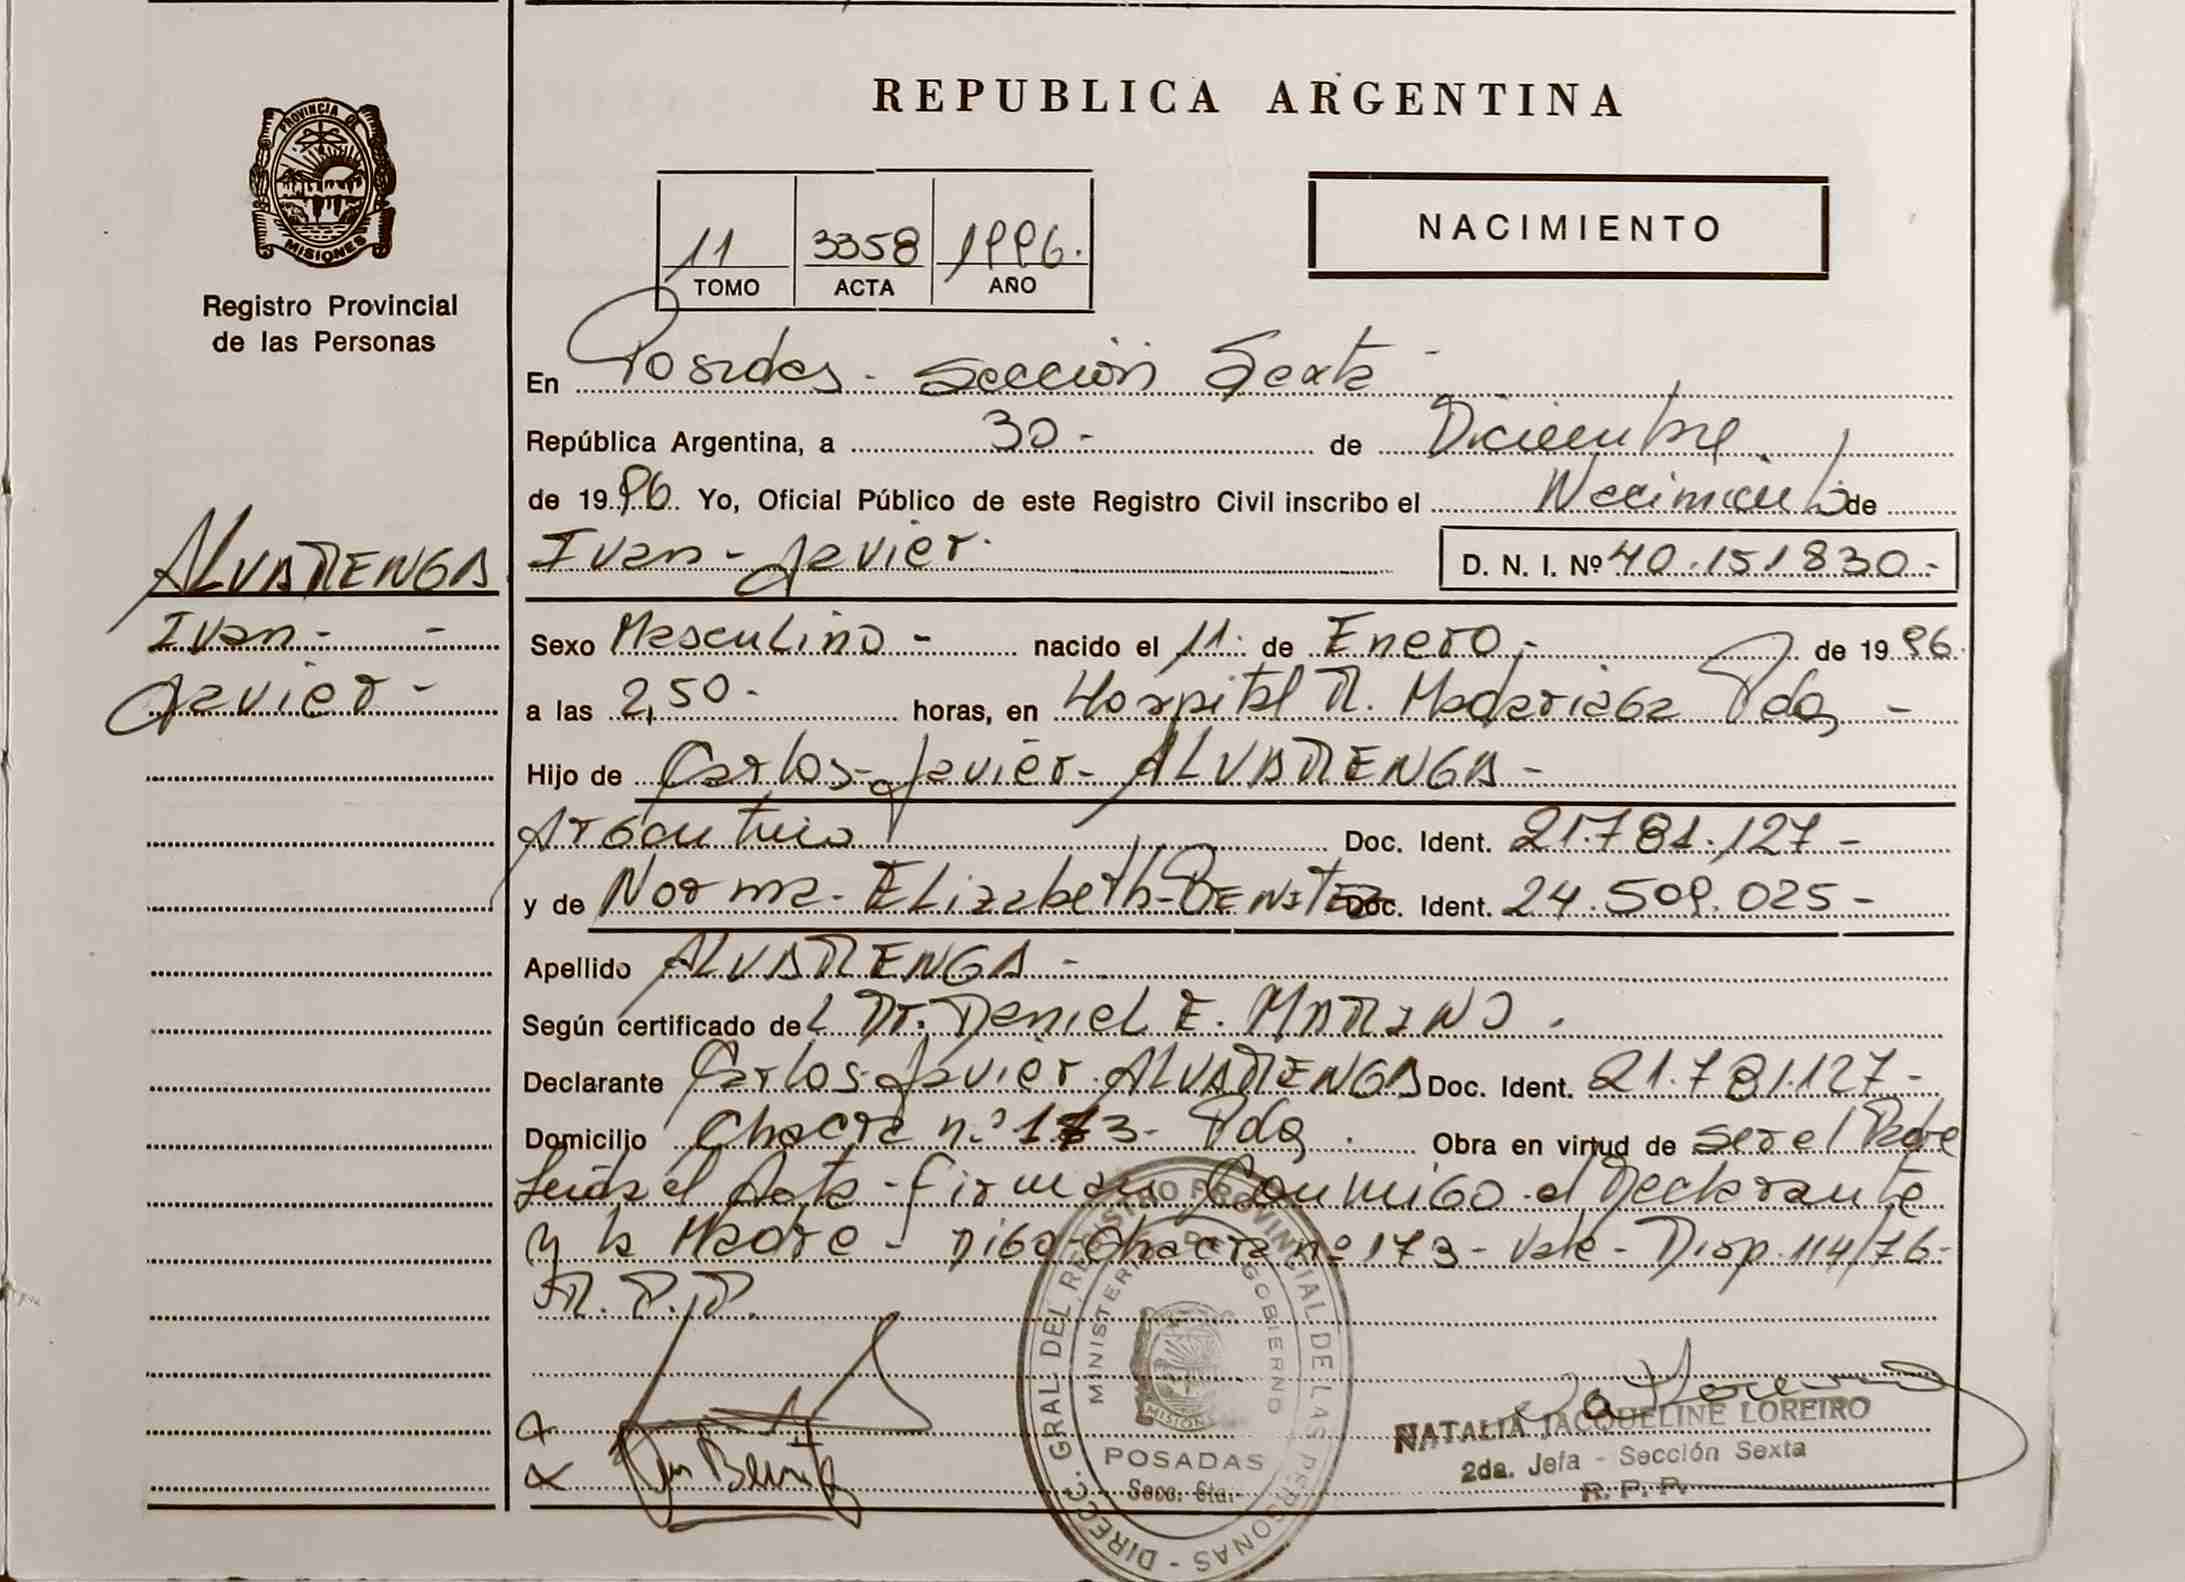 PROVINCIA DE
MISIONES
Registro Provincial
de las Personas
ALVARENGA
Ivan -
Javier -
REPUBLICA ARGENTINA
11 3358 1996.
TOMO ACTA AÑO
NACIMIENTO
En Posadas - Sección Sexta -
República Argentina, a 30 - de Diciembre
de 1996. Yo, Oficial Público de este Registro Civil inscribo el Nacimiento de
Ivan - Javier - D. N. I. Nº 40.151830 -
Sexo Masculino - nacido el 11. de Enero - de 1996.
a las 2,50 - horas, en Hospital R. Madariaga Pdas -
Hijo de Carlos - Javier - ALVARENGA -
Argentino Doc. Ident. 21.781.127 -
y de Norma - Elizabeth - BENITEZ Doc. Ident. 24.509.025 -
Apellido ALVARENGA -
Según certificado del Dr. Daniel E. MARINO .
Declarante Carlos - Javier - ALVARENGA Doc. Ident. 21.781.127 -
Domicilio Chacra n.º 173 - Pdas . Obra en virtud de ser el Padre
Leída el Acta - firman Conmigo el Declarante
y la Madre - Digo - Chacra nº 173 - Vale - Disp. 114/76 -
R.P.P.
DIRECC. GRAL DEL REGISTRO PROVINCIAL DE LAS PERSONAS -
MINISTERIO DE GOBIERNO
MISIONES
POSADAS
Secc. 6ta. -
NATALIA JACQUELINE LOREIRO
2da. Jefa - Sección Sexta
R. P. P.